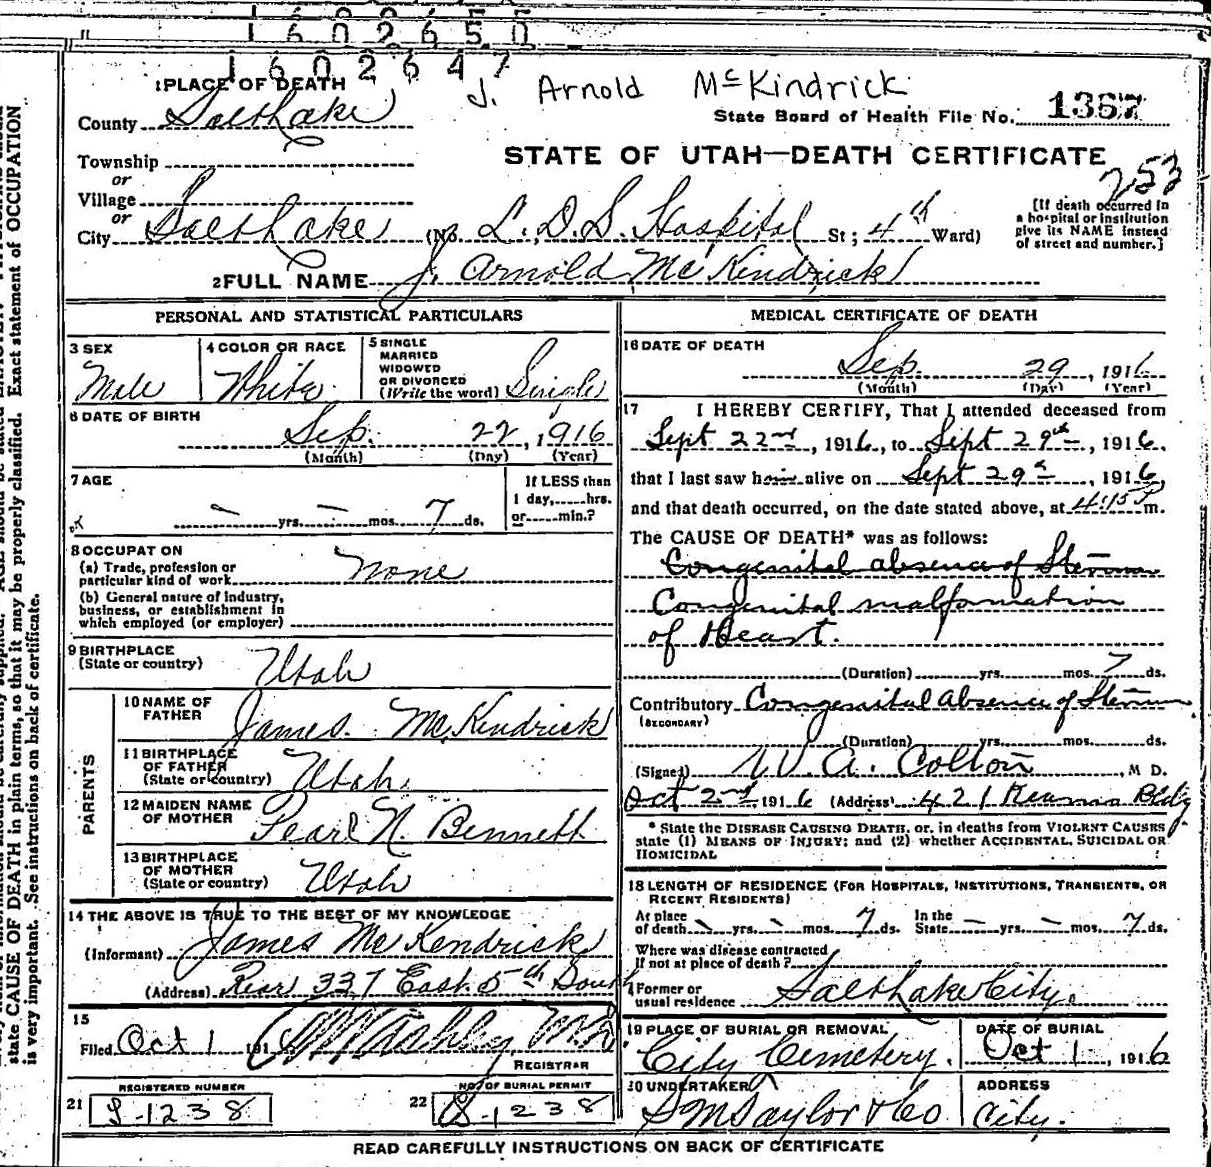 1602650
1602647
J. Arnold McKindrick
1 PLACE OF DEATH
State Board of Health File No. 1367
County Salt Lake
STATE OF UTAH—DEATH CERTIFICATE
Township
253
or
Village
or
City Salt Lake (No. L.D.S. Hospital St; 4th Ward)
[If death occurred in
a hospital or institution
give its NAME instead
of street and number.]
2 FULL NAME J. Arnold McKindrick
PERSONAL AND STATISTICAL PARTICULARS
3 SEX
Male
4 COLOR OR RACE
White
5 SINGLE
MARRIED
WIDOWED
OR DIVORCED
(Write the word) Single
6 DATE OF BIRTH
Sep. 22, 1916
(Month) (Day) (Year)
7 AGE
– yrs. – mos. 7 ds.
If LESS than
1 day, hrs.
or min.?
8 OCCUPATION
(a) Trade, profession or
particular kind of work None
(b) General nature of industry,
business, or establishment in
which employed (or employer)
9 BIRTHPLACE
(State or country) Utah
PARENTS
10 NAME OF
FATHER James. McKindrick
11 BIRTHPLACE
OF FATHER
(State or country) Utah.
12 MAIDEN NAME
OF MOTHER Pearl N. Bennett
13 BIRTHPLACE
OF MOTHER
(State or country) Utah
14 THE ABOVE IS TRUE TO THE BEST OF MY KNOWLEDGE
(Informant) James McKendrick
(Address) Rear 337 East 5th South
15
Filed Oct 1 191
REGISTRAR
REGISTERED NUMBER
21 S-1238
NO. OF BURIAL PERMIT
22 S-1238
MEDICAL CERTIFICATE OF DEATH
16 DATE OF DEATH
Sep. 29, 1916
(Month) (Day) (Year)
17 I HEREBY CERTIFY, That I attended deceased from
Sept 22nd, 1916, to Sept 29th, 1916,
that I last saw him alive on Sept 29th, 1916,
and that death occurred, on the date stated above, at 4:15 P m.
The CAUSE OF DEATH* was as follows:
Congenital absence of Sternum
Congenital malformation
of Heart.
(Duration) yrs. mos. 7 ds.
Contributory Congenital Absence of Sternum
(SECONDARY)
(Duration) yrs. mos. ds.
(Signed) W. A. Colton, M D.
Oct 2nd 1916 (Address) 421 Kearns Bldg
* State the DISEASE CAUSING DEATH, or, in deaths from VIOLENT CAUSES
state (1) MEANS OF INJURY; and (2) whether ACCIDENTAL, SUICIDAL OR
HOMICIDAL
18 LENGTH OF RESIDENCE (FOR HOSPITALS, INSTITUTIONS, TRANSIENTS, OR
RECENT RESIDENTS)
At place
of death – yrs. – mos. 7 ds.
In the
State – yrs. – mos. 7 ds.
Where was disease contracted
if not at place of death?
Former or
usual residence Salt Lake City.
19 PLACE OF BURIAL OR REMOVAL
City Cemetery.
DATE OF BURIAL
Oct 1, 1916
20 UNDERTAKER
S M Taylor & Co
ADDRESS
City.
READ CAREFULLY INSTRUCTIONS ON BACK OF CERTIFICATE
state CAUSE OF DEATH in plain terms, so that it may be properly classified. Exact statement of OCCUPATION
is very important. See instructions on back of certificate.